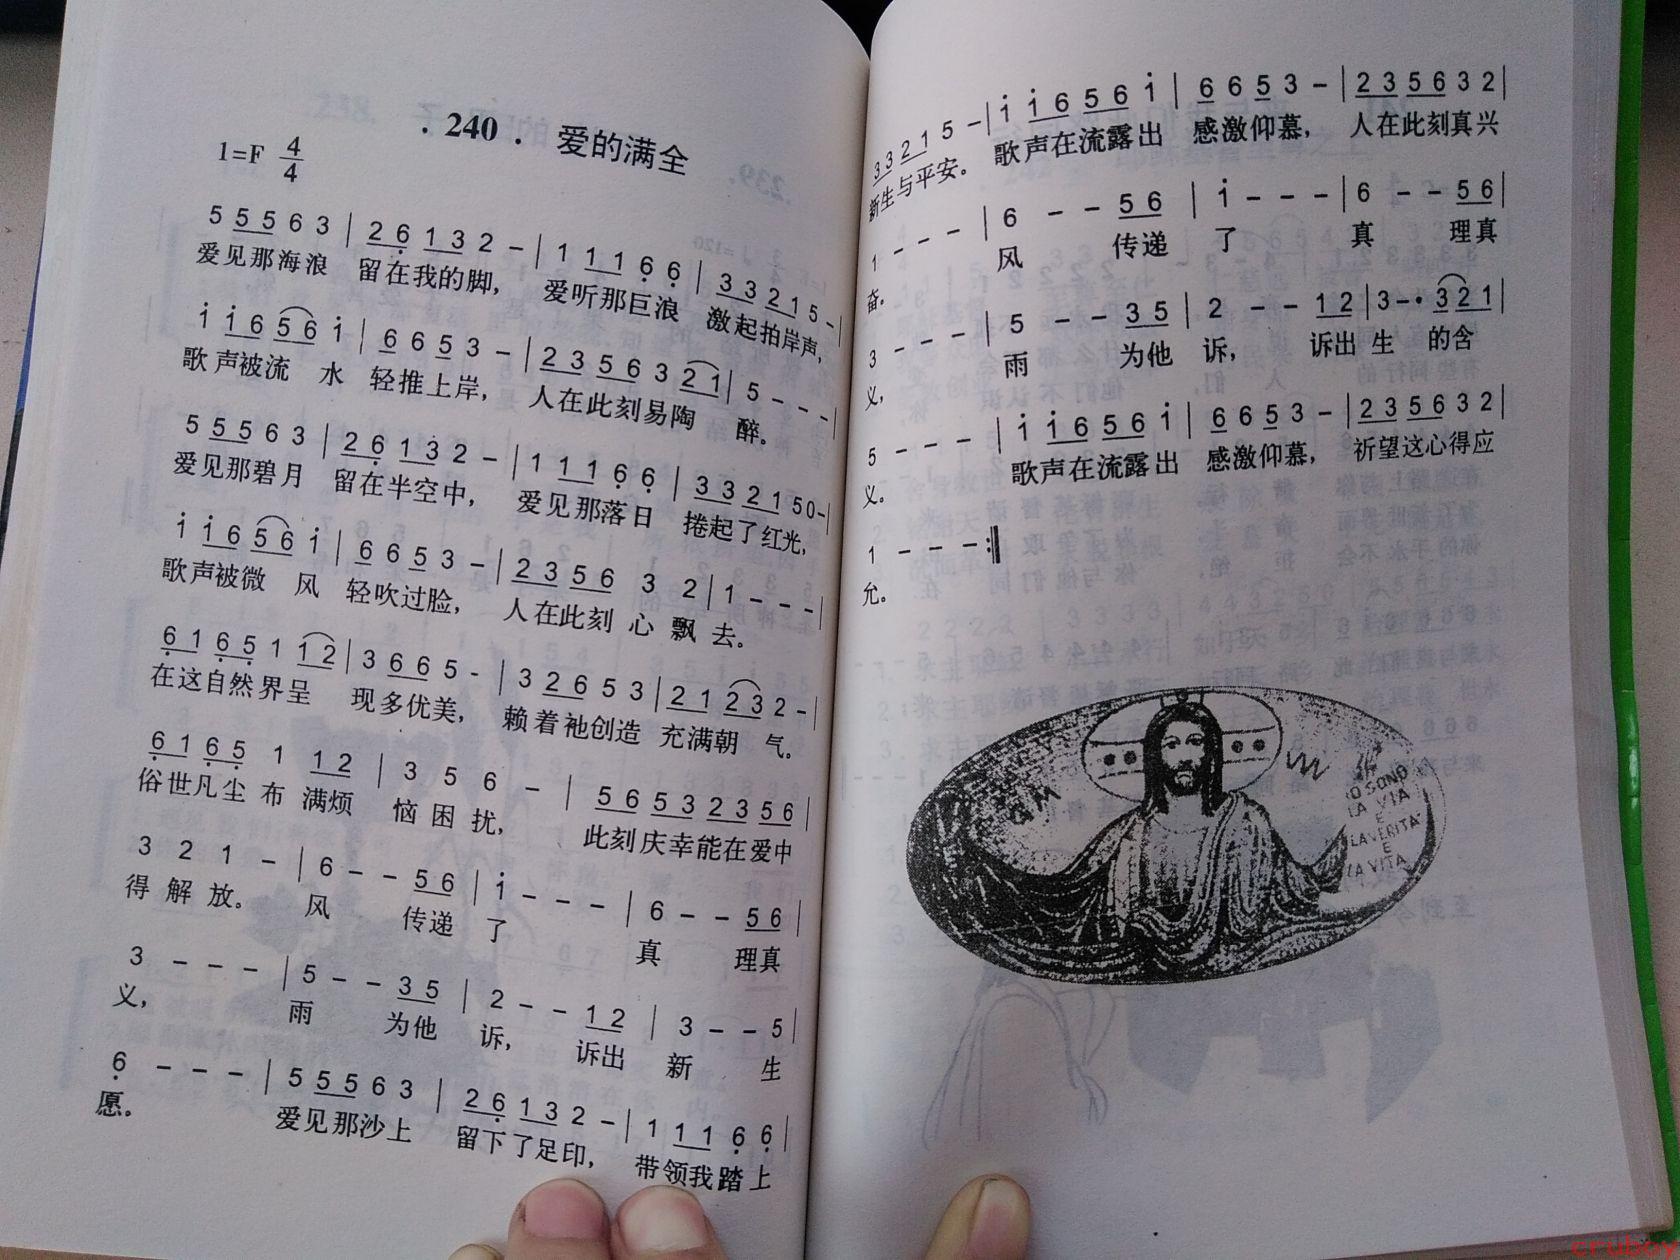 . 240 . 爱的满全
1=F 4/4
5 5 5 6 3 | 2 6 1 3 2 – | 1 1 1 6 6 | 3 3 2 1 5 – |
爱见那海浪 留在我的脚， 爱听那巨浪 激起拍岸声，
i i 6 5 6 i | 6 6 5 3 – | 2 3 5 6 3 2 1 | 5 – – – |
歌声被流 水 轻推上岸， 人在此刻易陶 醉。
5 5 5 6 3 | 2 6 1 3 2 – | 1 1 1 6 6 | 3 3 2 1 5 0 – |
爱见那碧月 留在半空中， 爱见那落日 捲起了红光，
i i 6 5 6 i | 6 6 5 3 – | 2 3 5 6 3 2 | 1 – – – |
歌声被微 风 轻吹过脸， 人在此刻 心 飘 去。
6 1 6 5 1 1 2 | 3 6 6 5 - | 3 2 6 5 3 | 2 1 2 3 2 – |
在这自然界呈 现多优美， 赖着祂创造 充满朝 气。
6 1 6 5 1 1 2 | 3 5 6 – | 5 6 5 3 2 3 5 6 |
俗世凡尘 布 满烦 恼 困 扰， 此刻庆幸能在爱中
3 2 1 – | 6 – – 5 6 | i – – – | 6 – – 5 6 |
得 解 放。 风 传递 了 真 理真
3 – – – | 5 – – 3 5 | 2 – – 1 2 | 3 – – 5 |
义， 雨 为他 诉， 诉出 新 生
6 – – – | 5 5 5 6 3 | 2 6 1 3 2 – | 1 1 1 6 6 |
愿。 爱见那沙上 留下了足印， 带领我踏上
3 3 2 1 5 – | i i 6 5 6 i | 6 6 5 3 – | 2 3 5 6 3 2 |
新生与平安。 歌声在流露出 感激仰慕， 人在此刻真兴
1 – – – | 6 – – 5 6 | i – – – | 6 – – 5 6 |
奋。 风 传递 了 真 理真
3 – – – | 5 – – 3 5 | 2 – – 1 2 | 3 – · 3 2 1 |
义， 雨 为他 诉， 诉出 生 的含
5 – – – | i i 6 5 6 i | 6 6 5 3 – | 2 3 5 6 3 2 |
义。 歌声在流露出 感激仰慕， 祈望这心得应
1 – – – :‖
允。
IO SONO
LA VIA
E
LA VERITA'
E
LA VITA
cruboy